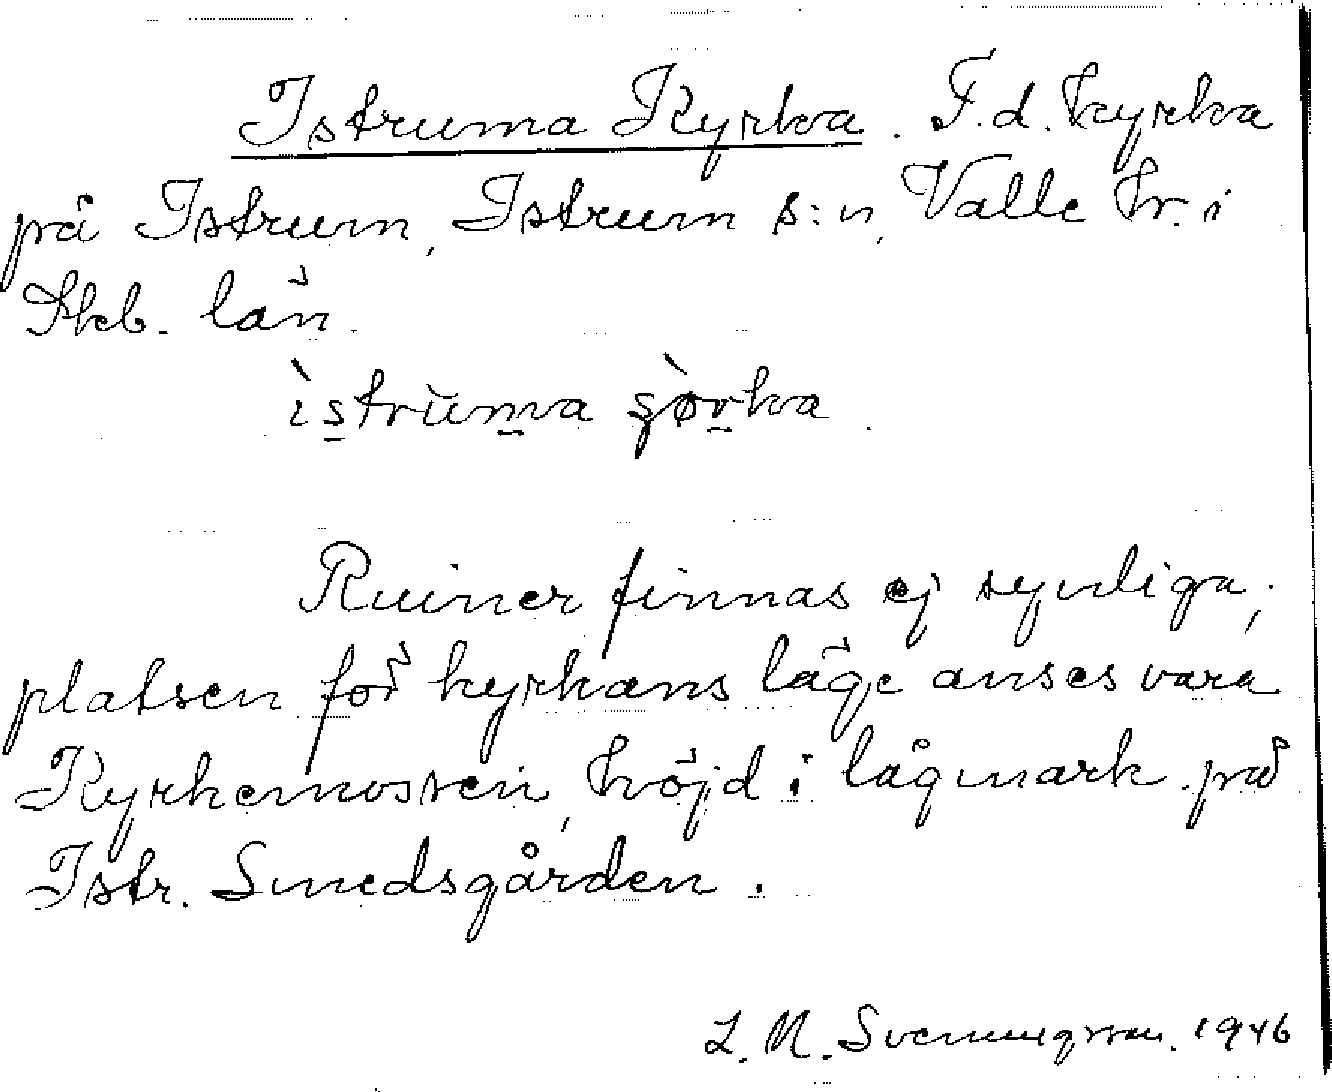 Istruma Kyrka. F.d. kyrka
på Istrum, Istrum s:n, Valle hr. i
Skb. län.
ìstrùma çòrka.
Ruiner finnas ej synliga;
platsen för kyrkans läge anses vara
Kyrkemossen, höjd i lågmark på
Istr. Smedsgården.
L. M. Svenungsson. 1946